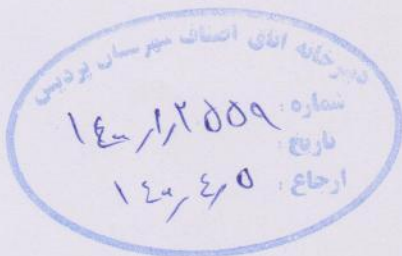 دبیرخانه اتاق اصناف شهرستان پردیس
شماره: ۱۴۰۰/۱/۲۵۵۹
تاریخ:
ارجاع: ۱۴۰۰/۴/۵